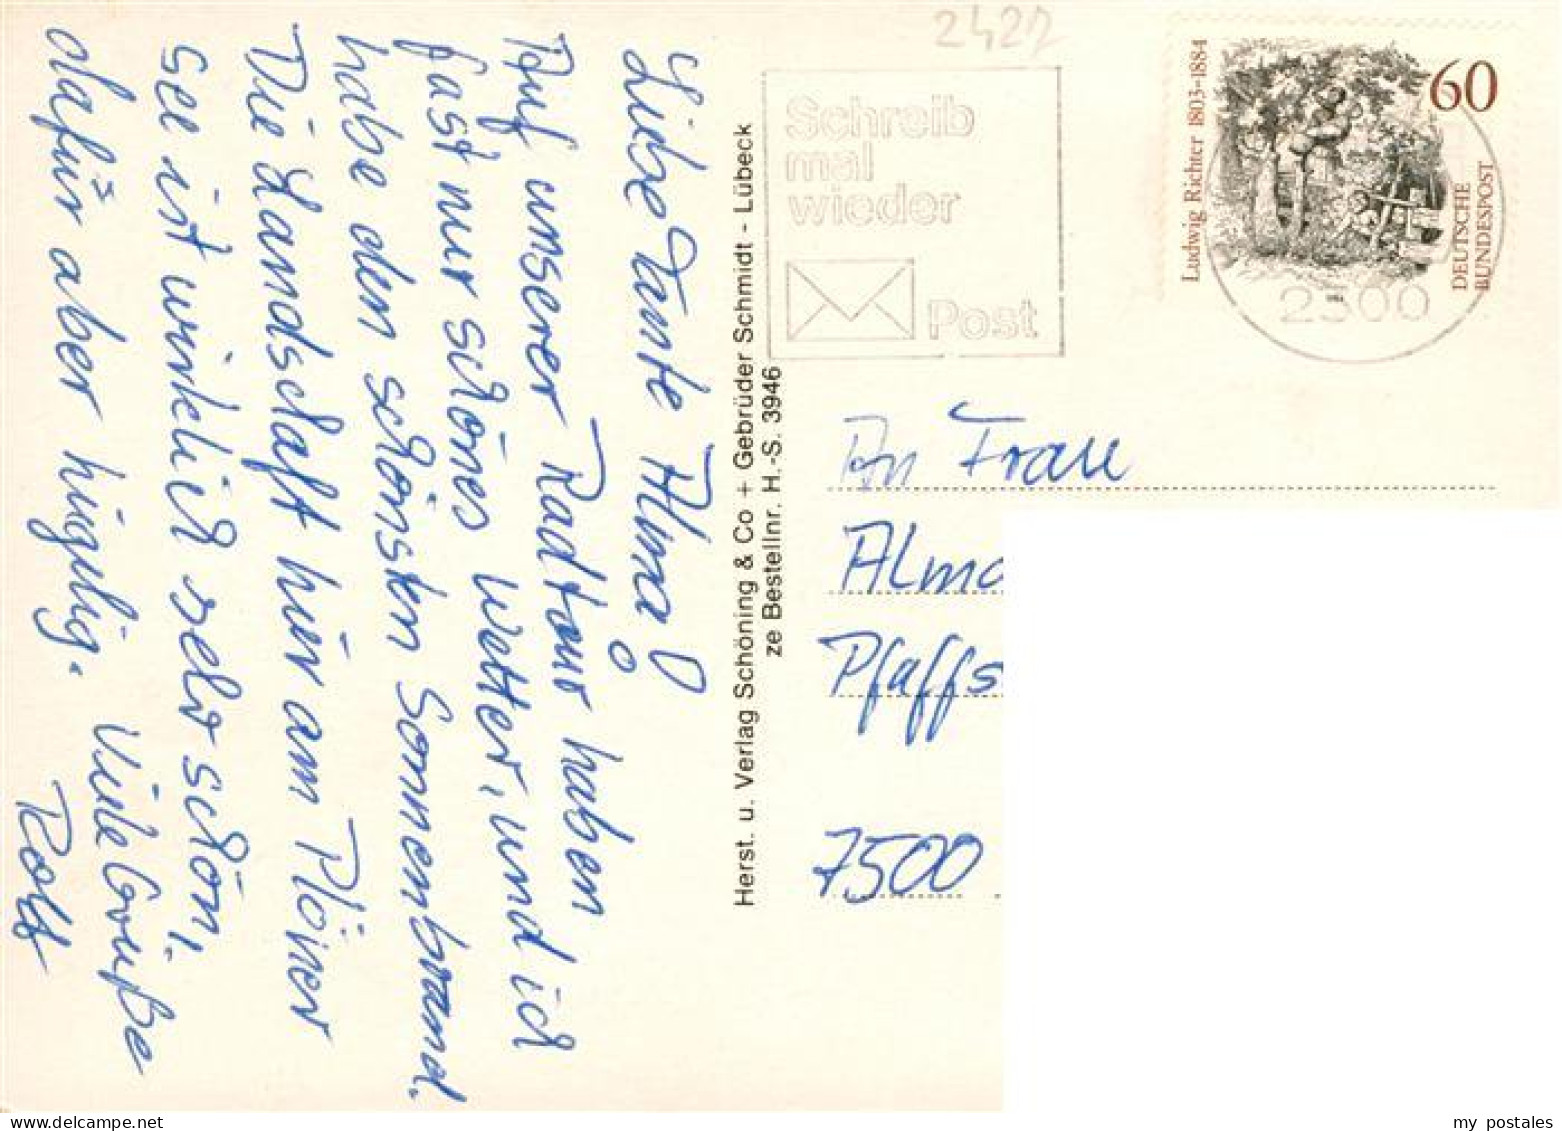 Liebe Tante Alma!
Auf unserer Radtour haben
fast nur schönes Wetter, und ich
habe den schönsten Sonnenbrand.
Die Landschaft hier am Plöner
See ist wirklich sehr schön,
dafür aber hügelig.
Viele Grüße
Rolf
Herst. u. Verlag Schöning & Co + Gebrüder Schmidt - Lübeck
ze Bestellnr. H.-S. 3946
2422
Schreib
mal
wieder
Post
Ludwig Richter 1803-1884
60
DEUTSCHE
BUNDESPOST
2300
An Frau
Alma
Pfaffs
7500
my postales